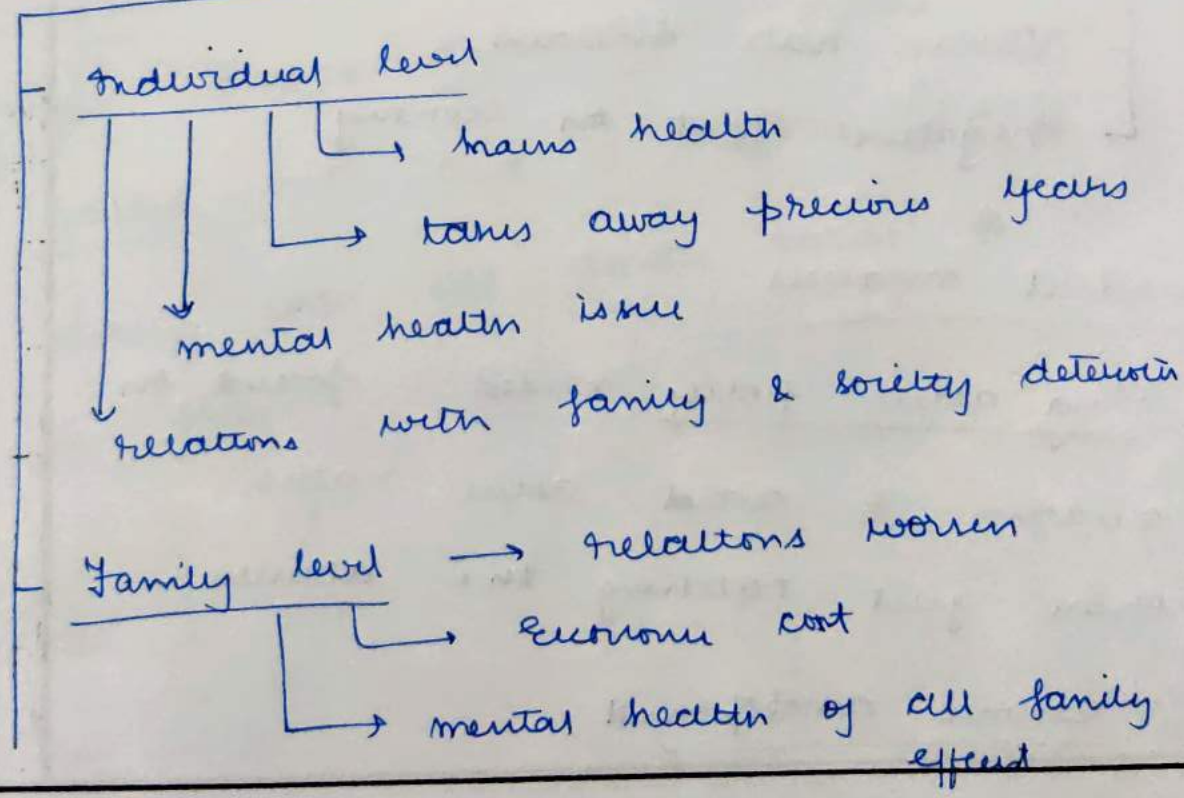 Individual level
→ harms health
→ takes away precious years
mental health issue
relations with family & society deterior
Family level → relations worsen
→ Economic cost
→ mental health of all family
effect